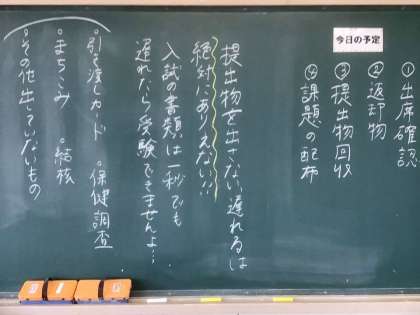 今日の予定
①出席確認
②返却物
③提出物回収
④課題の配布
提出物を出さない、遅れるは
絶対にありえない!!
入試の書類は一秒でも
遅れたら受験できませんよ…
。引き渡しカード 。保健調査
。まちこみ 。結核
。その他出していないもの